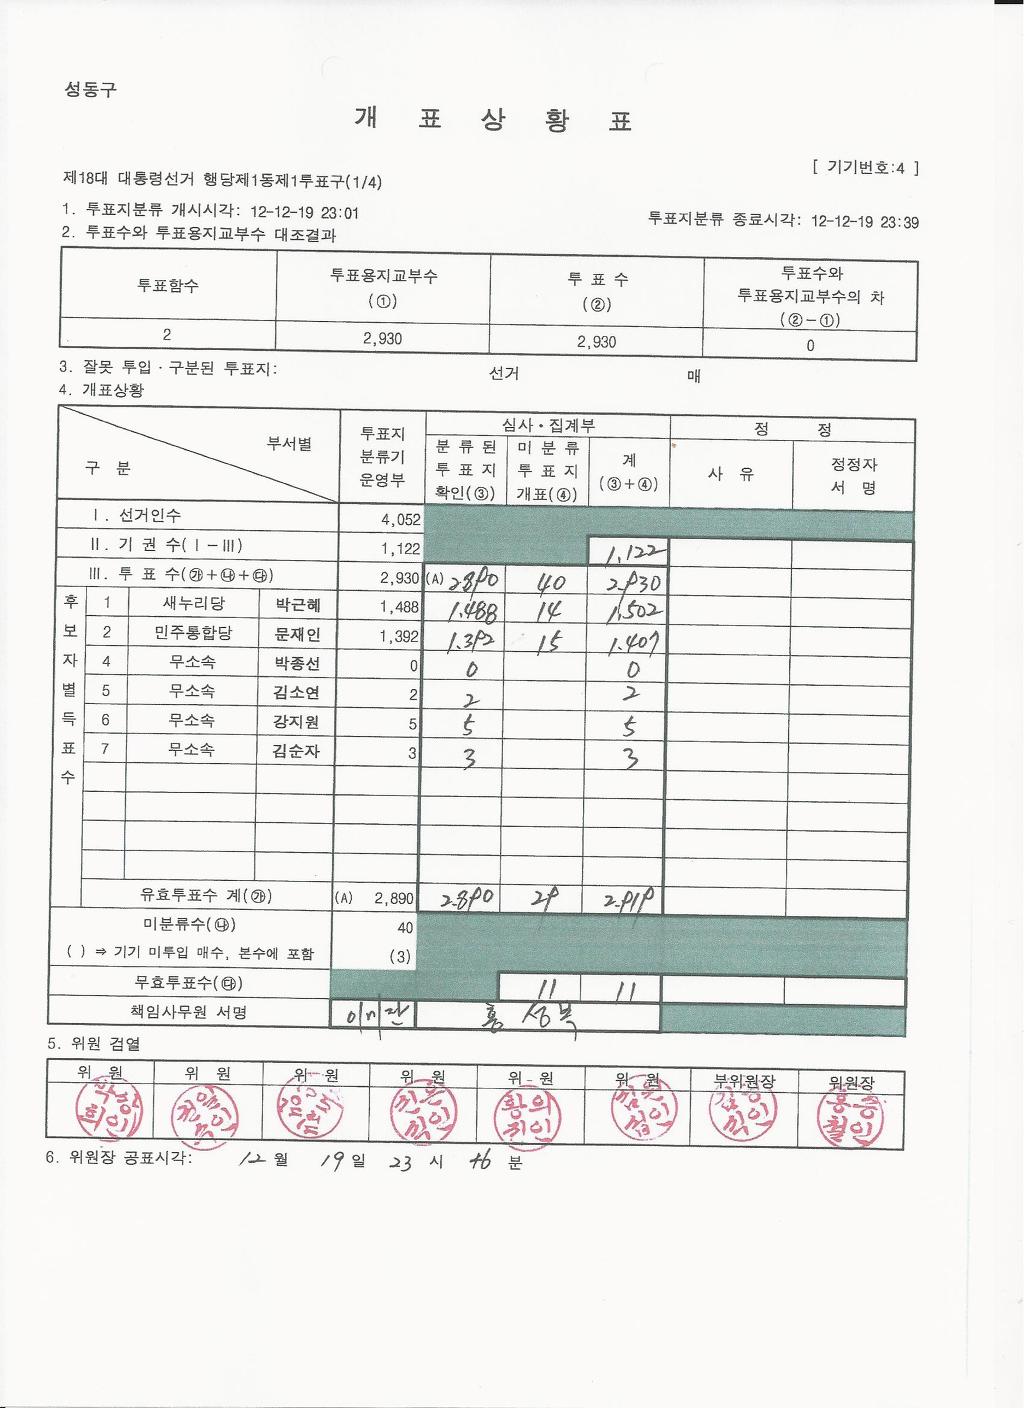 성동구
개 표 상 황 표
[ 기기번호:4 ]
제18대 대통령선거 행당제1동제1투표구(1/4)
1. 투표지분류 개시시각: 12-12-19 23:01 투표지분류 종료시각: 12-12-19 23:39
2. 투표수와 투표용지교부수 대조결과
투표함수 투표용지교부수 (①) 투 표 수 (②) 투표수와 투표용지교부수의 차 (②-①)
2 2,930 2,930 0
3. 잘못 투입·구분된 투표지: 선거 매
4. 개표상황
구 분 부서별 투표지 분류기 운영부 심사·집계부 정 정
분 류 된 투 표 지 확인(③) 미 분 류 투 표 지 개표(④) 계 (③+④) 사 유 정정자 서 명
Ⅰ. 선거인수 4,052
Ⅱ. 기 권 수(Ⅰ-Ⅲ) 1,122 1,122
Ⅲ. 투 표 수(㉮+㉯+㉰) 2,930 (A) 2.890 40 2.930
후보자별득표수
1 새누리당 박근혜 1,488 1.488 14 1.502
2 민주통합당 문재인 1,392 1.392 15 1.407
4 무소속 박종선 0 0 0
5 무소속 김소연 2 2 2
6 무소속 강지원 5 5 5
7 무소속 김순자 3 3 3
유효투표수 계(㉮) (A) 2,890 2.890 29 2.919
미분류수(㉯) 40
( ) ⇒ 기기 미투입 매수, 본수에 포함 (3)
무효투표수(㉰) 11 11
책임사무원 서명
5. 위원 검열
위 원 위 원 위 원 위 원 위 원 위 원 부위원장 위원장
6. 위원장 공표시각: 12 월 19 일 23 시 46 분